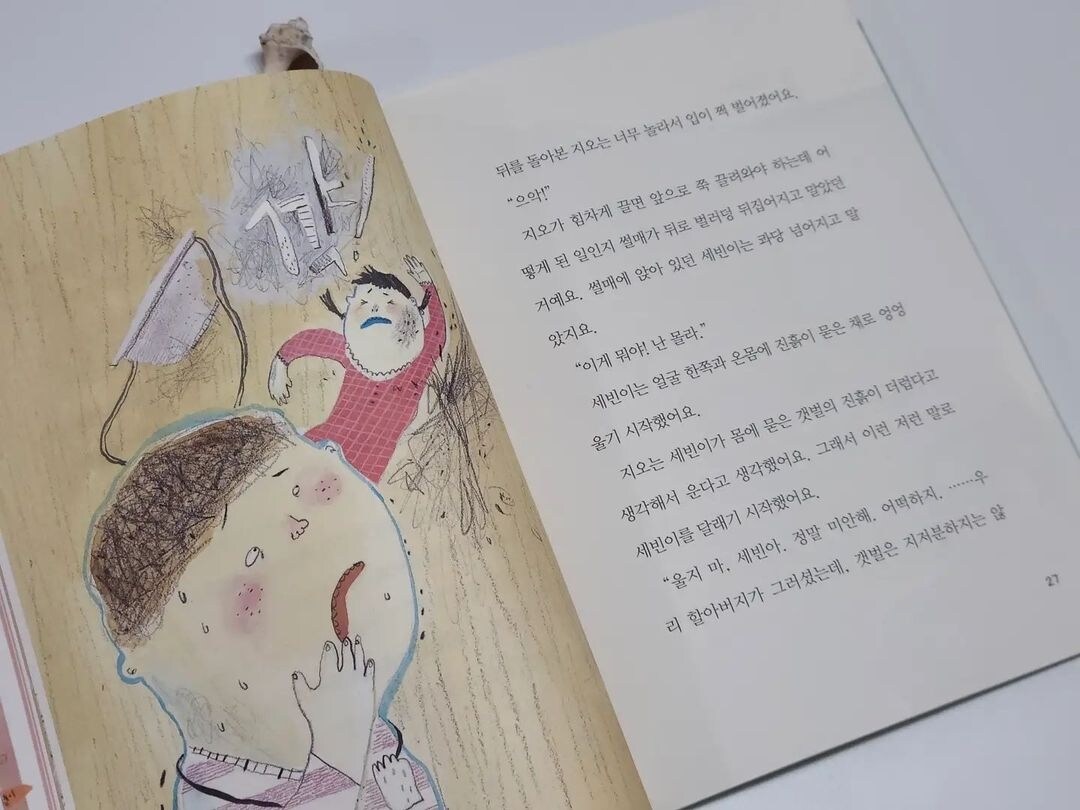 뒤를 돌아본 지오는 너무 놀라서 입이 쩍 벌어졌어요.
“으악!”
지오가 힘차게 끌면 앞으로 쭉 끌려와야 하는데 어
떻게 된 일인지 썰매가 뒤로 벌러덩 뒤집어지고 말았던
거예요. 썰매에 앉아 있던 세빈이는 꽈당 넘어지고 말
았지요.
“이게 뭐야! 난 몰라.”
세빈이는 얼굴 한쪽과 온몸에 진흙이 묻은 채로 엉엉
울기 시작했어요.
지오는 세빈이가 몸에 묻은 갯벌의 진흙이 더럽다고
생각해서 운다고 생각했어요. 그래서 이런 저런 말로
세빈이를 달래기 시작했어요.
“울지 마. 세빈아. 정말 미안해. 어떡하지. ……우
리 할아버지가 그러셨는데, 갯벌은 지저분하지는 않
27